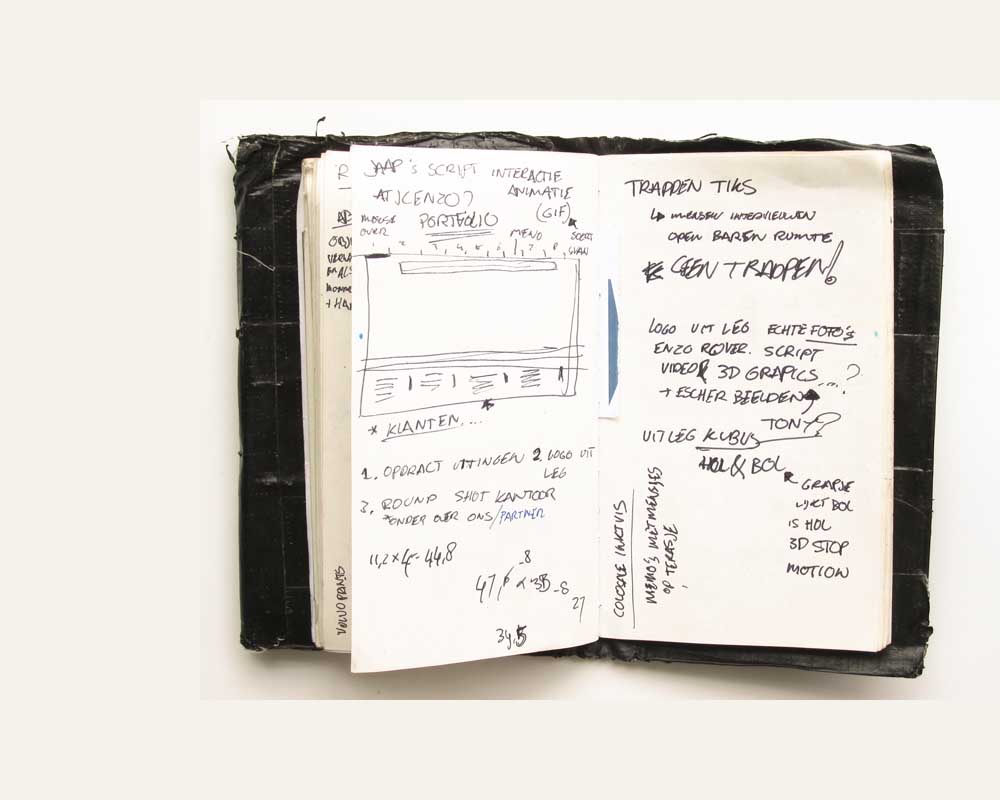 JAAP's SCRIPT INTERACTIE
ANIMATIE
(GIF)
PORTFOLIO
OVER
MENO
* KLANTEN....
1. OPDRACT UITINGEN 2. LOGO UIT
LEG
3. ROUND SHOT KANTOOR
*ONDER OVER ONS/PARTNER
11,2 x 4 = 44,8
-8
27
34,5
TRAPPEN TIKS
↳ MENSEN INTERVIEUWEN
OPEN BAREN RUIMTE
GEEN TRAPPEN!
LOGO UIT LEG ECHTE FOTO'S
ENZO ROVER. SCRIPT
VIDEO & 3D GRAPICS....?
+ ESCHER BEELDEN
TONY?
UITLEG KUBUS
HOL & BOL
GRAPJE
LIJKT BOL
IS HOL
3D STOP
MOTION
COLOSALE INKTVIS
MEMO'S MET MENSJES
OP TERASJE
VOLVO PANIS